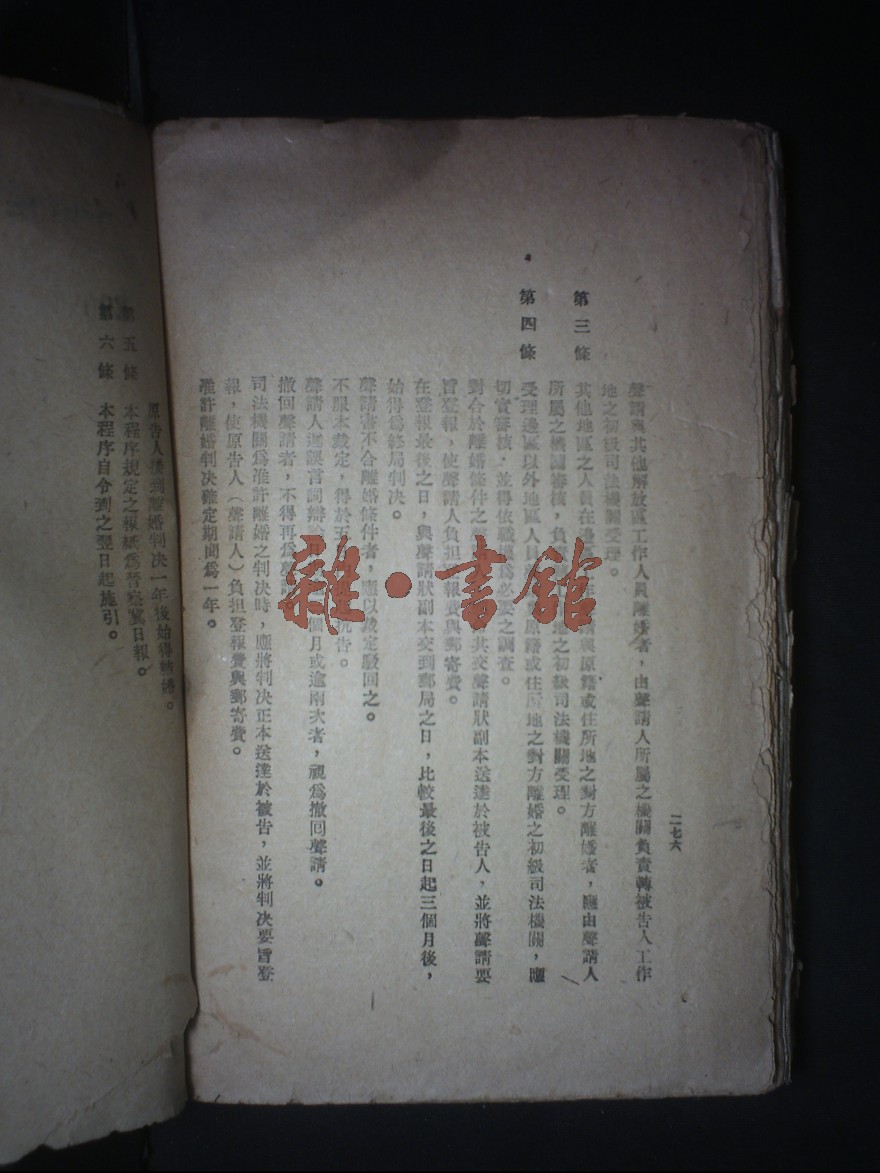 二七六
聲請與其他解放區工作人員離婚者，由聲請人所屬之機關負責轉被告人工作
地之初級司法機關受理。
第三條 其他地區之人員在邊 與原籍或住所地之對方離婚者，應由聲請人
所屬之機關審核，負 地之初級司法機關受理。
第四條 受理邊區以外地區人員 原籍或住所地之對方離婚之初級司法機關，應
切實審核，並得依職權為必要之調查。
對合於離婚條件之 其交聲請狀副本送達於被告人，並將聲請要
旨登報，使聲請人負担登報費與郵寄費。
在登報最後之日，與聲請狀副本交到郵局之日，比較最後之日起三個月後，
始得為終局判決。
聲請書不合離婚條件者，應以裁定駁回之。
不服本裁定，得於五 抗告。
聲請人遲誤言詞辯論 個月或逾兩次者，視為撤回聲請。
撤回聲請者，不得再為聲請。
司法機關為准許離婚之判決時，應將判決正本送達於被告，並將判決要旨登
報，使原告人（聲請人）負担登報費與郵寄費。
准許離婚判決確定期間為一年。
原告人接到離婚判決一年後始得結婚。
第五條 本程序規定之報紙為晉察冀日報。
第六條 本程序自令到之翌日起施引。
雜·書館